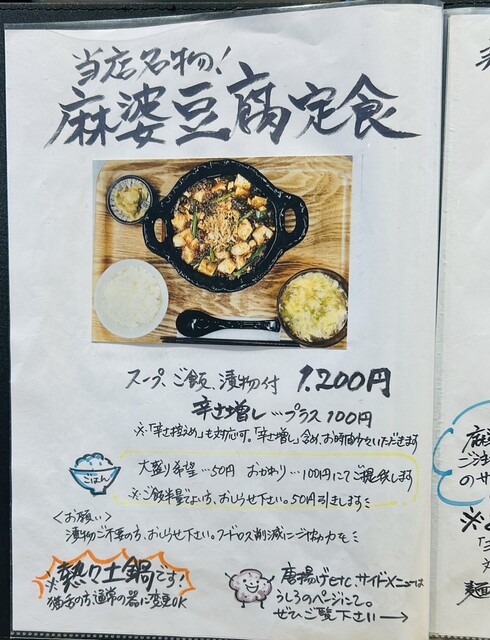 当店名物!
麻婆豆腐定食
スープ、ご飯、漬物付 1,200円
辛さ増し…プラス100円
※「辛さ控えめ」も対応可。「辛さ増し」含め、お時間少々いただきます
ごはん
大盛り希望…50円 おかわり…100円にてご提供します
※ご飯半量でよい方、おしらせ下さい。50円引きします
<お願い>
漬物ご不要の方、おしらせ下さい。フードロス削減にご協力を
※熱々土鍋です!
猫舌の方、通常の器に変更OK
唐揚げetc、サイドメニューは
うしろのページにて。
ぜひご覧下さい→
麻婆
ご注
のサ
※
麺